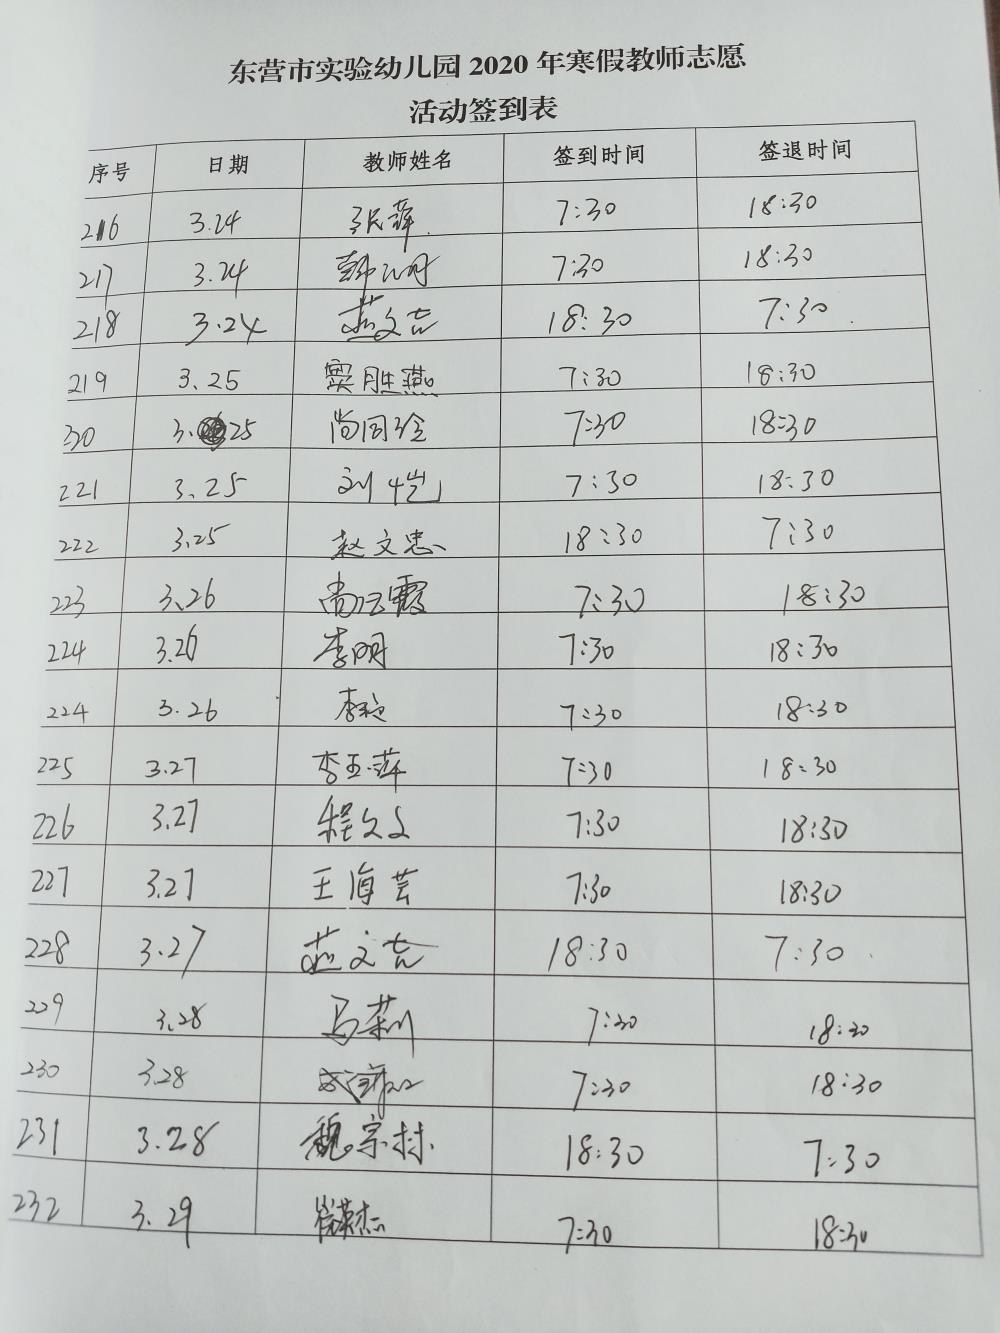 东营市实验幼儿园 2020 年寒假教师志愿
活动签到表
序号 日期 教师姓名 签到时间 签退时间
216 3.24 7:30 18:30
217 3.24 7:30 18:30
218 3.24 18:30 7:30
219 3.25 窦胜燕 7:30 18:30
320 3.25 7:30 18:30
221 3.25 刘恺 7:30 18:30
222 3.25 赵文忠 18:30 7:30
223 3.26 尚云霞 7:30 18:30
224 3.26 李明 7:30 18:30
224 3.26 7:30 18:30
225 3.27 李玉萍 7:30 18:30
226 3.27 程文文 7:30 18:30
227 3.27 王海芸 7:30 18:30
228 3.27 18:30 7:30
229 3.28 马荣川 7:30 18:30
230 3.28 7:30 18:30
231 3.28 魏宗村 18:30 7:30
232 3.29 崔英杰 7:30 18:30